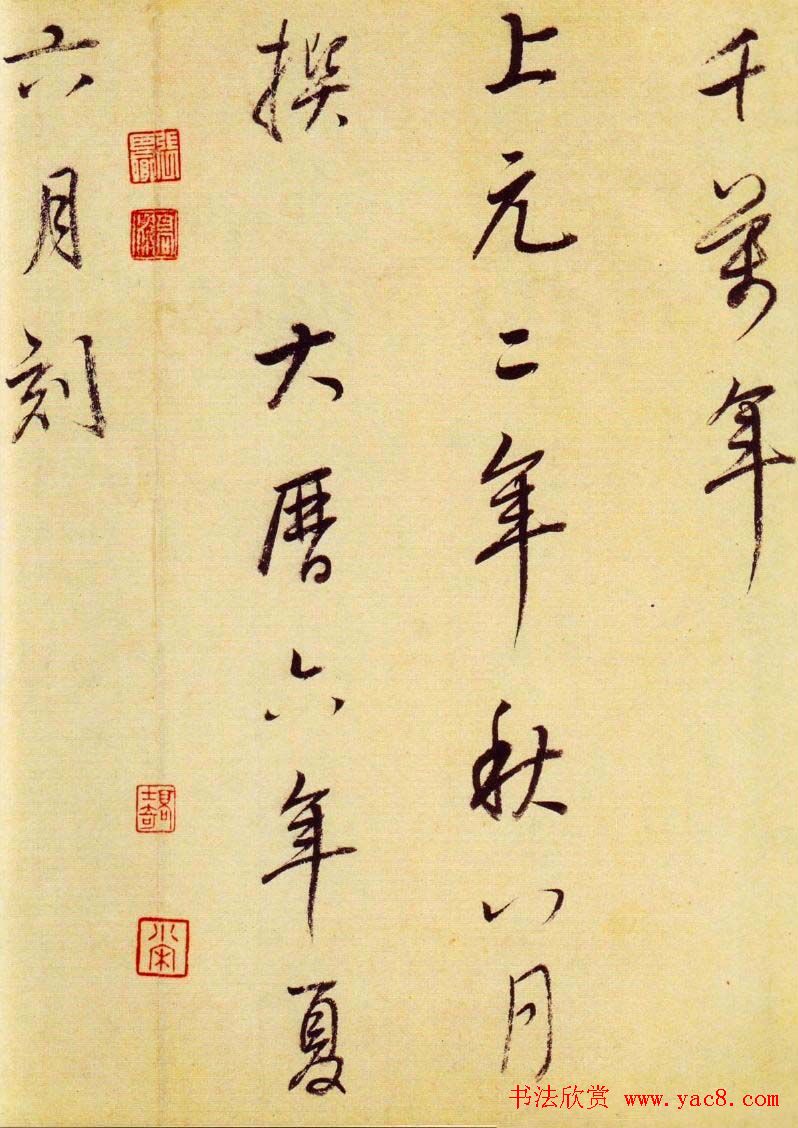 千萬年
上元二年秋八月
撰 大曆六年夏
六月刻
书法欣赏 www.yac8.com